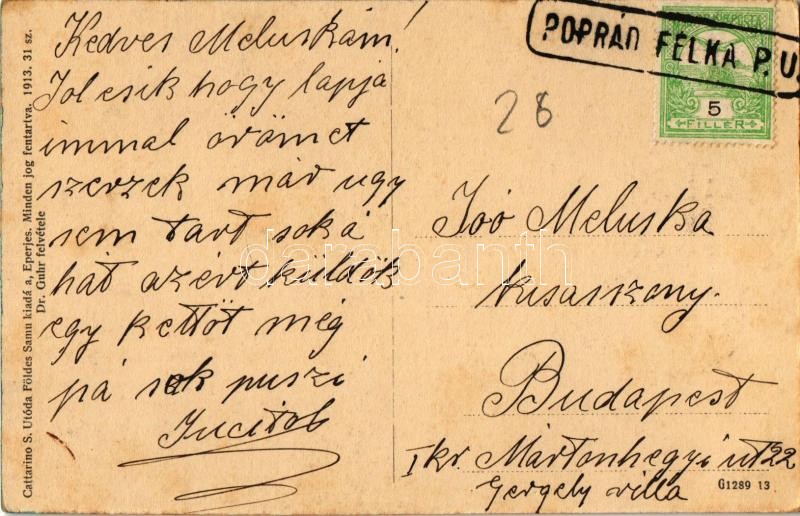 Kedves Meluskám!
Jol esik hogy lapja
immal örömet
szerzek már ugy
sem tart soká
hát azért küldök
egy kettöt még
pá sok puszi
Jucitol
28
POPRÁD FELKA P. U.
5
FILLÉR
Joó Meluska
kisasszony.
Budapest
I kr. Mártonhegyi út 22
Gergely villa
G1289 13
Cattarino S. Utóda Földes Samu kiadá a, Eperjes. Minden jog fentartva. 1913. 31 sz.
Dr. Guhr felvétele
darabanth